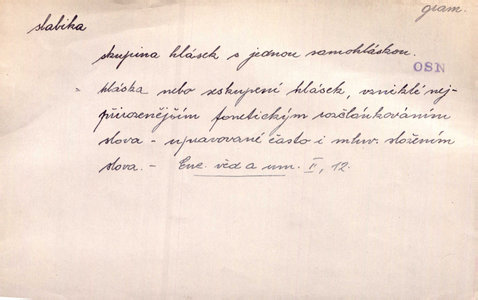 gram.
slabika
skupina hlásek s jednou samohláskou.
OSN
hláska nebo seskupení hlásek, vzniklé nej-
přirozenějším fonetickým rozčlánkováním
slova - upravované často i mluv. složením
slova. - Enc. věd a um. II, 12.